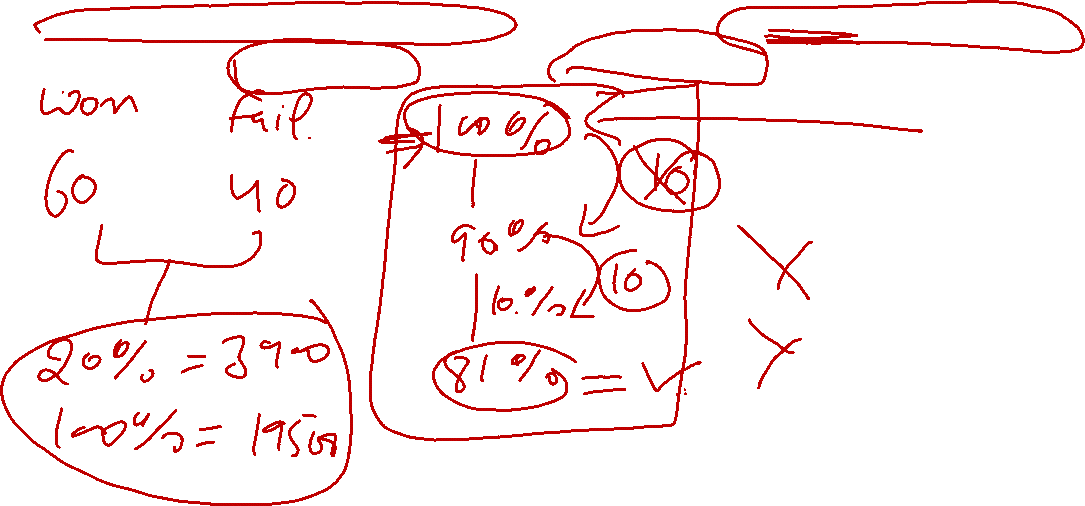 Won Fail.
60 40
20% = 3900
100% = 19500
100%
10
90%
10
10%
81% =